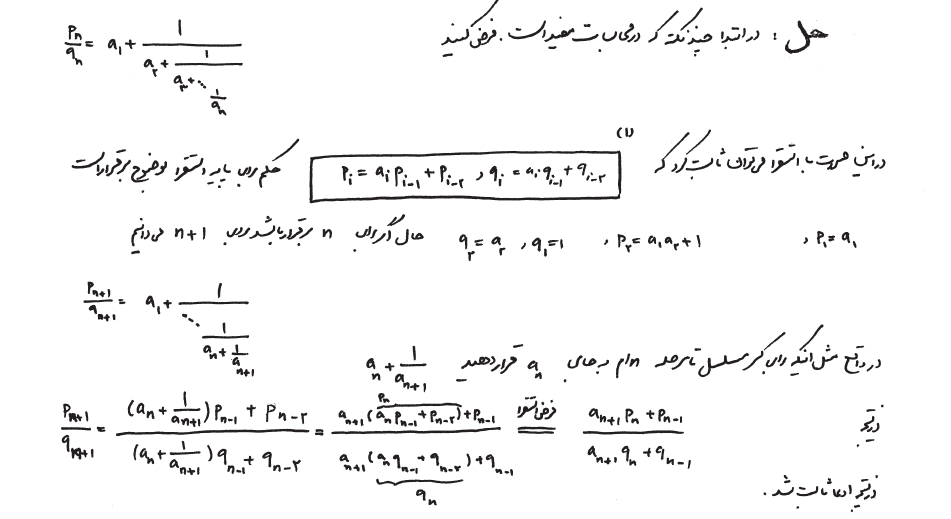 حل : در ابتدا چند نکته که در محاسبات مفید است . فرض کنید
p_n/q_n = a_1 + 1/(a_۲ + 1/(a_۳ + ⋱ 1/a_n))
(۱)
در این صورت با استقرا می‌توان ثابت کرد که p_i = a_i p_{i-1} + p_{i-۲} , q_i = a_i q_{i-1} + q_{i-۲} حکم برای پایه استقرا بوضوح برقرار است
, p_1 = a_1 , p_۲ = a_1 a_۲ + 1 , q_1 = 1 , q_۲ = a_۲ حال اگر برای n برقرار باشد برای n+1 می دانیم
p_{n+1}/q_{n+1} = a_1 + 1/(⋱ 1/(a_n + 1/a_{n+1}))
در واقع مثل اینکه برای کسر مسلسل تا مرحله nام به جای a_n قرار دهید a_n + 1/a_{n+1}
در نتیجه p_{n+1}/q_{n+1} = ((a_n + 1/a_{n+1}) p_{n-1} + p_{n-۲})/((a_n + 1/a_{n+1}) q_{n-1} + q_{n-۲}) = (a_{n+1}(a_n p_{n-1} + p_{n-۲}) + p_{n-1})/(a_{n+1}(a_n q_{n-1} + q_{n-۲}) + q_{n-1}) = (a_{n+1} p_n + p_{n-1})/(a_{n+1} q_n + q_{n-1})
p_n
فرض استقرا
q_n
در نتیجه ادعا ثابت شد .